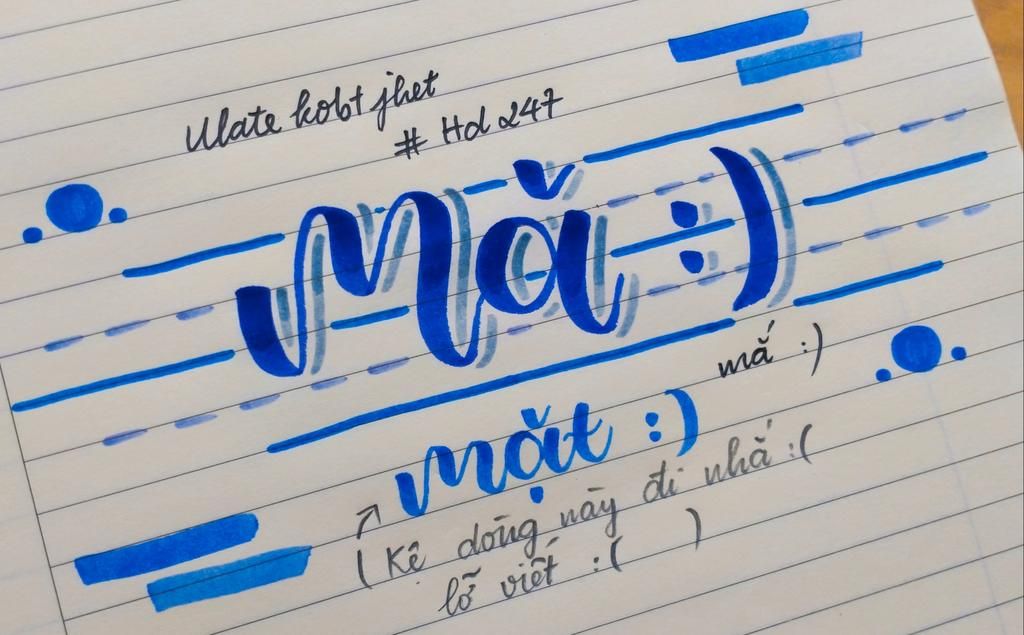 Ulate kobt jhet
# Hd 247
Mă :)
mắ :)
mặt :)
(Kệ dòng này đi nhắ :(
lỡ viết :( )